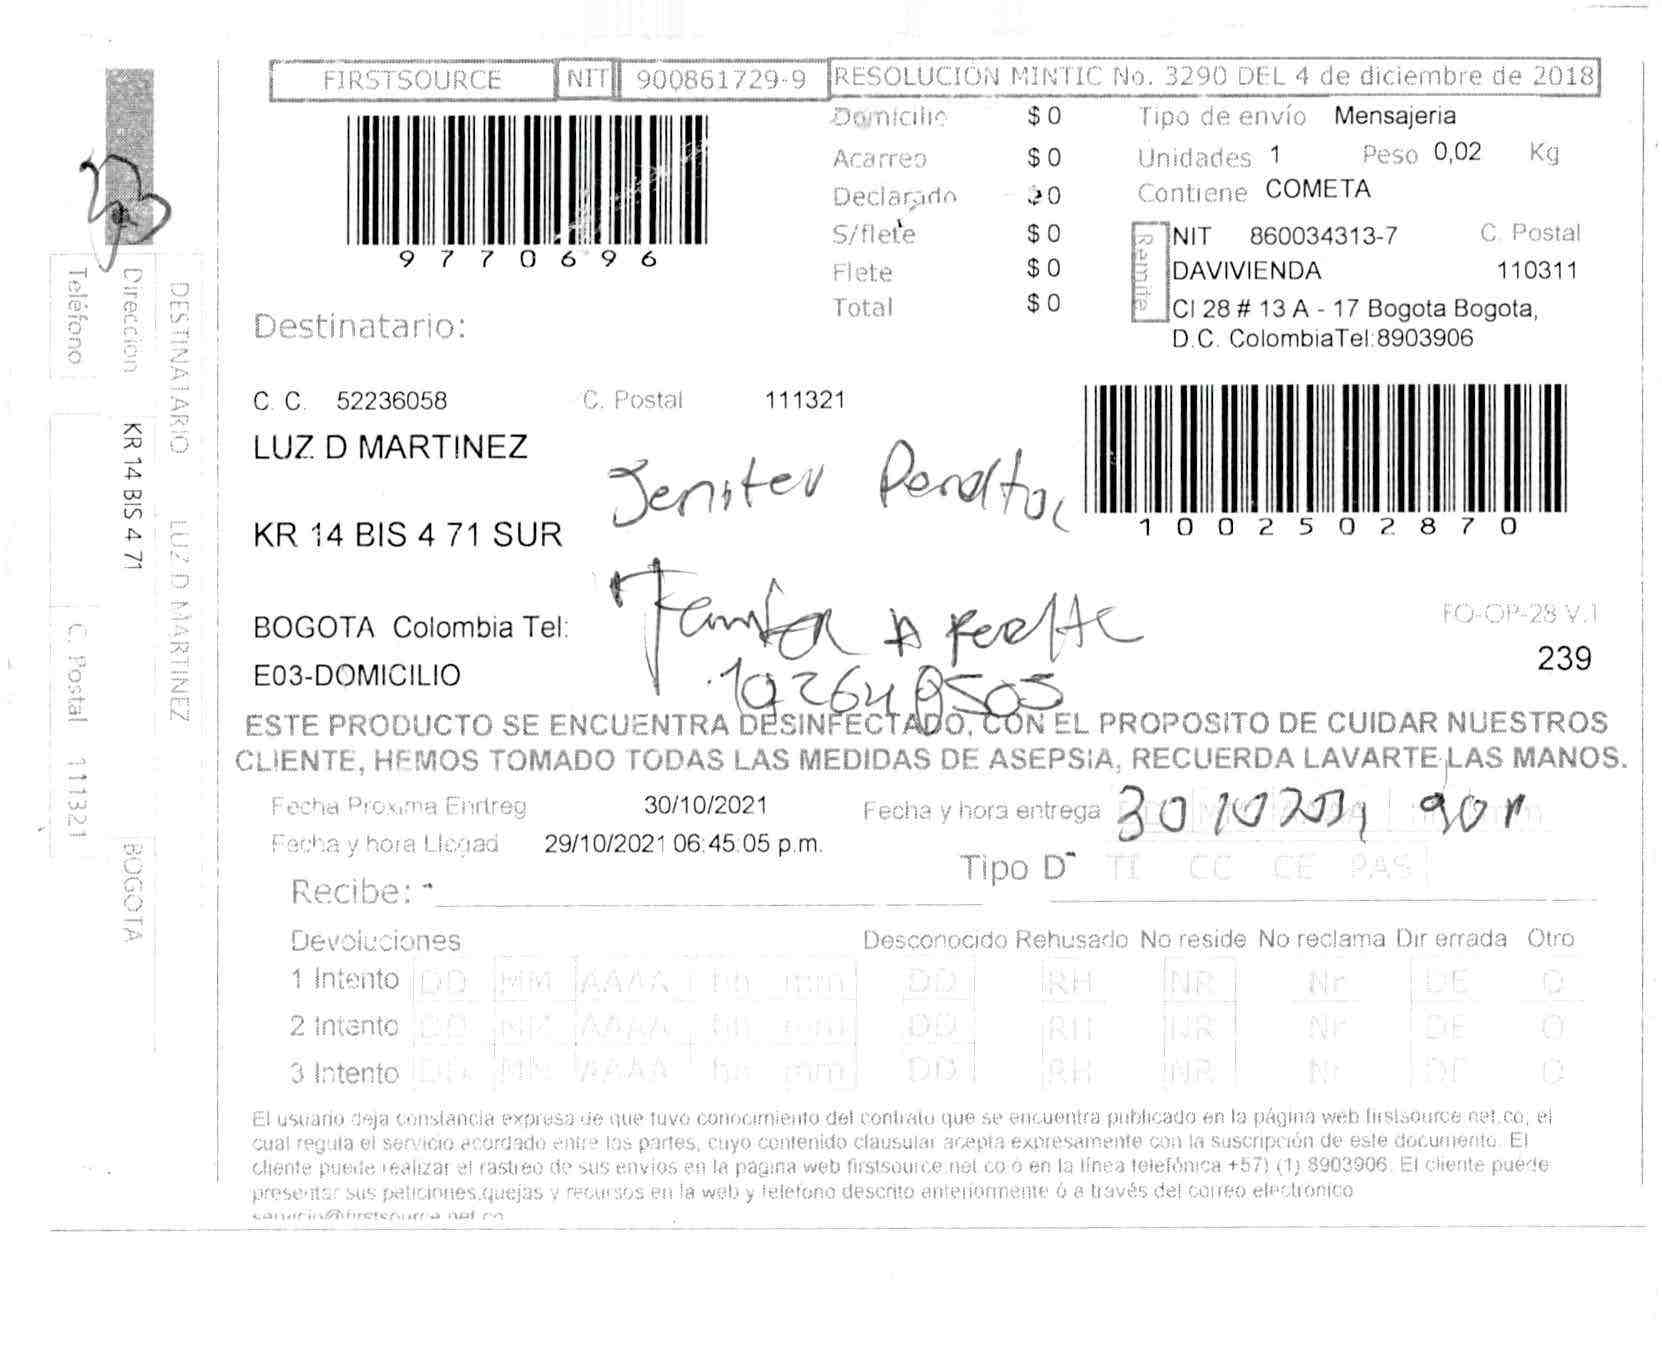 FIRSTSOURCE NIT 900861729-9 RESOLUCION MINTIC No. 3290 DEL 4 de diciembre de 2018
9770696
Domicilio $ 0
Acarreo $ 0
Declarado 0
S/flete $ 0
Flete $ 0
Total $ 0
Tipo de envío Mensajeria
Unidades 1 Peso 0,02 Kg
Contiene COMETA
Remite
NIT 860034313-7 C. Postal
DAVIVIENDA 110311
Cl 28 # 13 A - 17 Bogota Bogota,
D.C. ColombiaTel:8903906
Destinatario:
C. C. 52236058 C. Postal 111321
LUZ D MARTINEZ
KR 14 BIS 4 71 SUR
1002502870
BOGOTA Colombia Tel:
E03-DOMICILIO
FO-OP-28 V.1
239
ESTE PRODUCTO SE ENCUENTRA DESINFECTADO, CON EL PROPOSITO DE CUIDAR NUESTROS
CLIENTE, HEMOS TOMADO TODAS LAS MEDIDAS DE ASEPSIA, RECUERDA LAVARTE LAS MANOS.
Fecha Proxima Entreg 30/10/2021
Fecha y hora entrega 30 10 2021
Fecha y hora Llegad 29/10/2021 06:45:05 p.m.
Tipo D TI CC CE PAS
Recibe:
Devoluciones Desconocido Rehusado No reside No reclama Dir errada Otro
1 Intento DD MM AAAA hh mm DD RH NR Nr DE O
2 Intento DD MM AAAA hh mm DD RH NR Nr DE O
3 Intento DD MM AAAA hh mm DD RH NR Nr DE O
El usuario deja constancia expresa de que tuvo conocimiento del contrato que se encuentra publicado en la página web firstsource.net.co, el
cual regula el servicio acordado entre las partes, cuyo contenido clausular acepta expresamente con la suscripción de este documento. El
cliente puede realizar el rastreo de sus envios en la pagina web firstsource.net.co ó en la línea telefónica +57) (1) 8903906. El cliente puede
presentar sus peticiones,quejas y recursos en la web y telefono descrito anteriormente ó a través del correo electronico
servicio@firstsource.net.co
DESTINATARIO LUZ D MARTINEZ
Direccion KR 14 BIS 4 71 BOGOTA
Teléfono C. Postal 111321